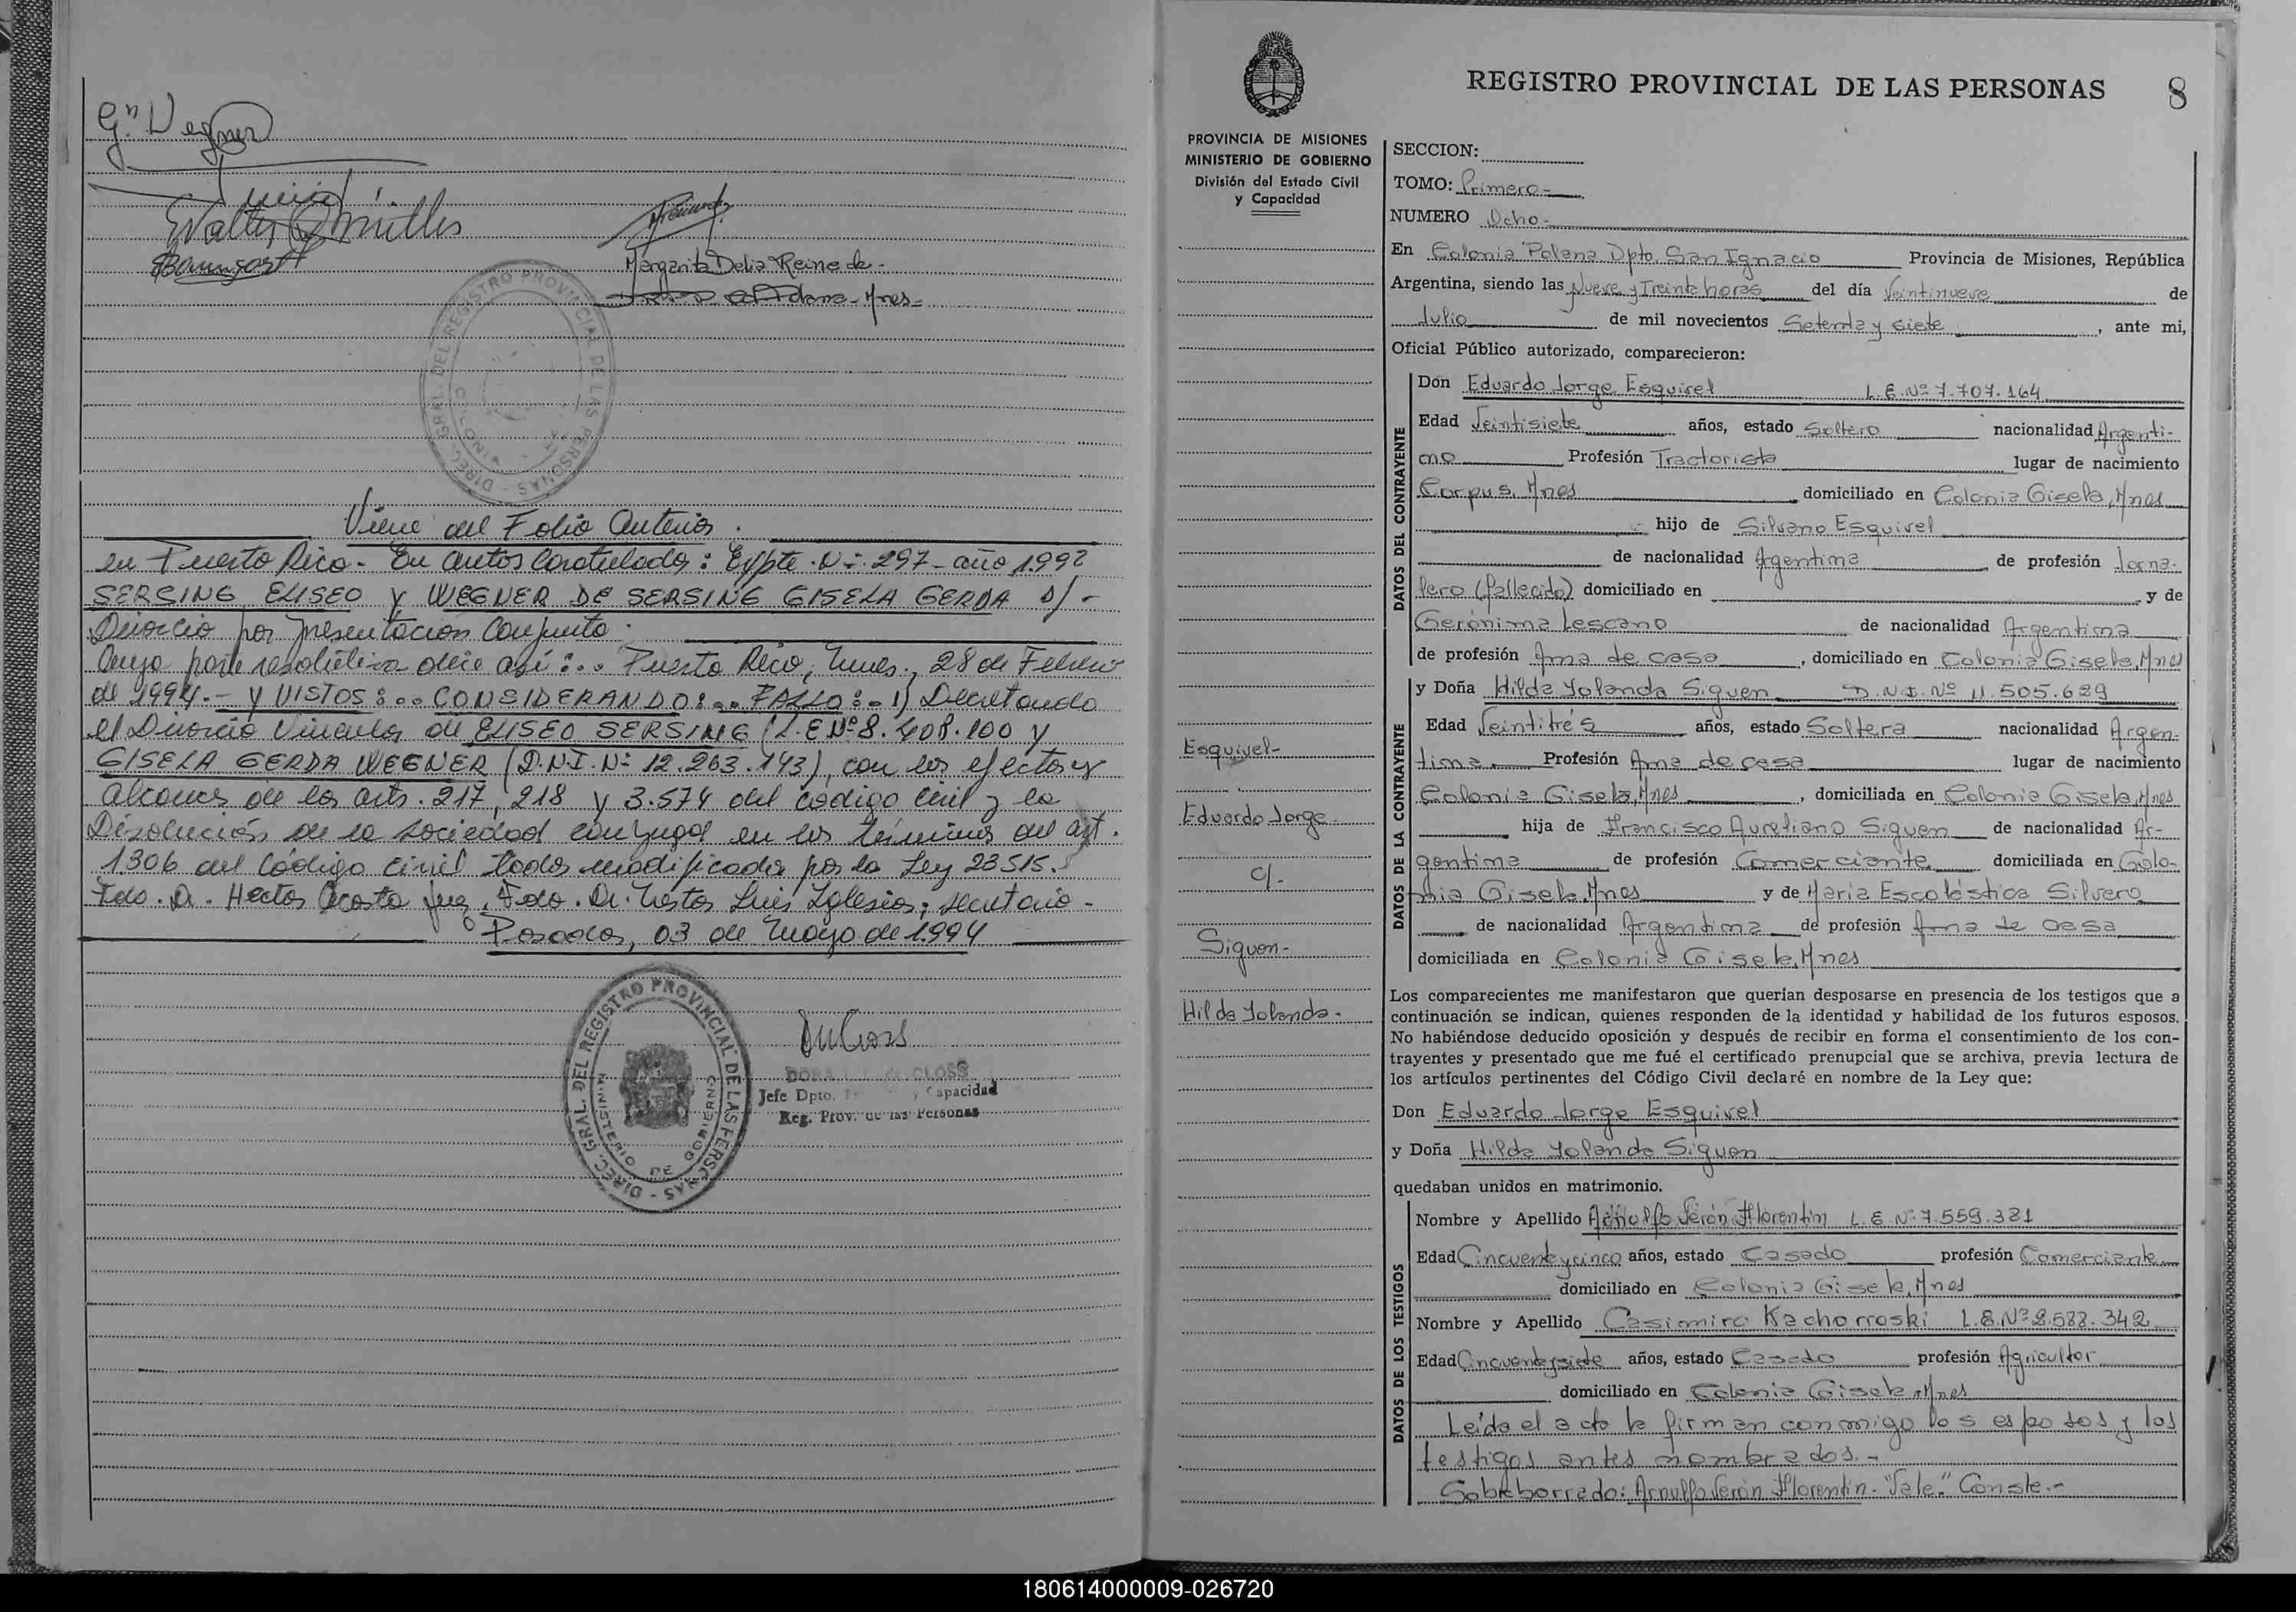 Gn Wegner
Walter O Müller
Baumgart
Margarita Delia Reine de-
Aldana-Mnes-
DIREC. GRAL. DEL REGISTRO PROVINCIAL DE LAS PERSONAS
Viene del Folio Anterior.
en Puerto Rico.- En autos Caratulados: Expte. Nº: 297- año 1992
SERSING ELISEO Y WEGNER DE SERSING GISELA GERDA S/-
Divorcio por presentación Conjunta.
Cuya parte resolutiva dice así:.. Puerto Rico, Mnes., 28 de Febrero
de 1994.- Y VISTOS:.. CONSIDERANDO:.. FALLO:- 1) Decretando
el Divorcio Vincular de ELISEO SERSING (L.E Nº 8.408.100 y
GISELA GERDA WEGNER (D.N.I. Nº 12.263.143), con los efectos y
alcances de los arts. 217, 218 y 3.574 del código Civil y la
Disolución de la sociedad conyugal en los términos del art.
1306 del Código Civil todos modificados por la Ley 23515.
Fdo. Dr. Hector Acosta Juez, Fdo. Dr. Nestor Luis Iglesias; secretario-
Posadas, 03 de Mayo de 1994
DIREC. GRAL. DEL REGISTRO PROVINCIAL DE LAS PERSONAS
MINISTERIO DE GOBIERNO
DORA CLOSS
Jefe Dpto. y Capacidad
Reg. Prov. de las Personas
REGISTRO PROVINCIAL DE LAS PERSONAS 8
PROVINCIA DE MISIONES
MINISTERIO DE GOBIERNO
División del Estado Civil
y Capacidad
Esquivel-
Eduardo Jorge-
c/.
Siguen-
Hilda Yolanda-
SECCION:
TOMO: Primero-
NUMERO Ocho-
En Colonia Polana Dpto. San Ignacio Provincia de Misiones, República
Argentina, siendo las Nueve y Treinta horas del día Veintinueve de
Julio de mil novecientos Setenta y siete, ante mi,
Oficial Público autorizado, comparecieron:
DATOS DEL CONTRAYENTE
Don Eduardo Jorge Esquivel L.E.Nº 7.707.164
Edad Veintisiete años, estado Soltero nacionalidad Argenti-
no Profesión Tractorista lugar de nacimiento
Corpus, Mnes domiciliado en Colonia Gisela, Mnes
hijo de Silvano Esquivel
de nacionalidad Argentina de profesión Jorna-
lero (fallecido) domiciliado en y de
Gerónima Lescano de nacionalidad Argentina
de profesión Ama de casa, domiciliado en Colonia Gisela, Mnes
DATOS DE LA CONTRAYENTE
y Doña Hilda Yolanda Siguen D.N.I. Nº 11.505.629
Edad Veintitrés años, estado Soltera nacionalidad Argen-
tina Profesión Ama de casa lugar de nacimiento
Colonia Gisela, Mnes, domiciliada en Colonia Gisela, Mnes
hija de Francisco Aureliano Siguen de nacionalidad Ar-
gentina de profesión Comerciante domiciliada en Colo-
nia Gisela, Mnes y de María Escolástica Silvero
de nacionalidad Argentina de profesión Ama de casa
domiciliada en Colonia Gisela, Mnes
Los comparecientes me manifestaron que querían desposarse en presencia de los testigos que a
continuación se indican, quienes responden de la identidad y habilidad de los futuros esposos.
No habiéndose deducido oposición y después de recibir en forma el consentimiento de los con-
trayentes y presentado que me fué el certificado prenupcial que se archiva, previa lectura de
los artículos pertinentes del Código Civil declaré en nombre de la Ley que:
Don Eduardo Jorge Esquivel
y Doña Hilda Yolanda Siguen
quedaban unidos en matrimonio.
DATOS DE LOS TESTIGOS
Nombre y Apellido Arnulfo Verón Florentin L.E Nº 7.559.381
Edad Cincuenta y cinco años, estado Casado profesión Comerciante
domiciliado en Colonia Gisela, Mnes
Nombre y Apellido Casimiro Kachorroski L.E.Nº 8.588.342
Edad Cincuenta y siete años, estado Casado profesión Agricultor
domiciliado en Colonia Gisela, Mnes
Leída el acta la firman conmigo los esposos y los
testigos antes nombrados.-
Sobreborrado: Arnulfo Verón Florentin- "Vale." Conste.-
180614000009-026720